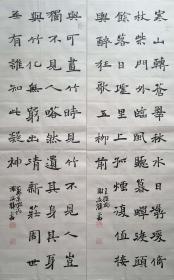 寒山轉蒼翠秋水日潺湲倚
杖柴門外臨風聽暮蟬渡頭
餘落日墟里上孤煙復值接
輿醉狂歌五柳前
與可畫竹時見竹不見人豈
獨不見人嗒然遺其身其身
與竹化無窮出清新莊周世
無有誰知此凝神